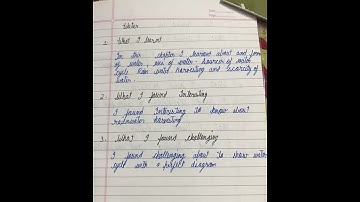 Water
1. What I learnt
In this chapter I learned about and form
of water, uses of water. Sources of water
cycle Rain water harvesting and scarcity of
water.
2. What I found Interesting
I found Interesting to know about
rainwater harvesting
3. What I found challenging
I found challenging about to show water
cycle with a perfect diagram